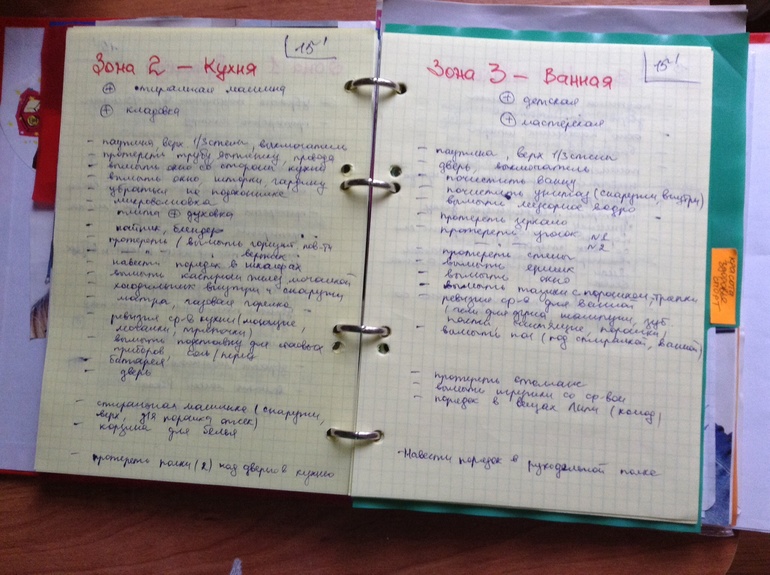 15-1
Зона 2 – Кухня
+ стиральная машина
+ кладовка
- паутина верх 1/3 стены, выключатели
- протереть трубу вытяжку, провода
- вымыть окно со стороны кухни
- вымыть окно, шторки, гардину
- убраться на подоконнике
- микроволновка
- плита + духовка
- чайник, блендер
- протереть / вымыть горизонт. пов-ти
вертик
- навести порядок в шкафах
- вымыть кастрюли
- холодильник внутри и снаружи
- люстра, газовая горелка
- ревизия ср-в кухни (моющие,
мочалки, тряпочки)
- вымыть подставку для столовых
приборов соль/перец
- батарея
- дверь
- стиральная машинка (снаружи,
верх, для порошка отсек)
- корзина для белья
- протереть полки (2) над дверью в кухню
15-1
Зона 3 – Ванная
+ детская
+ мастерская
- паутина, верх 1/3 стены
- дверь, выключатель
- почистить ванну
- почистить унитаз (снаружи, внутри)
- вымыть мусорное ведро
- протереть зеркало
- протереть уголок №1
№2
- протереть стены
- вымыть ершик
- вымыть окно
- вымыть тазики с порошком, тряпки
- ревизия ср-в для ванной
(гели для душа, шампуни, зуб
паста, чистящие, порошки)
- вымыть пол (под стиралкой, ванной)
- протереть
- вымыть игрушки со ср-вом
- порядок в вещах Лили (комод)
- Навести порядок в рукодельной полке
красота
здоровье
спорт